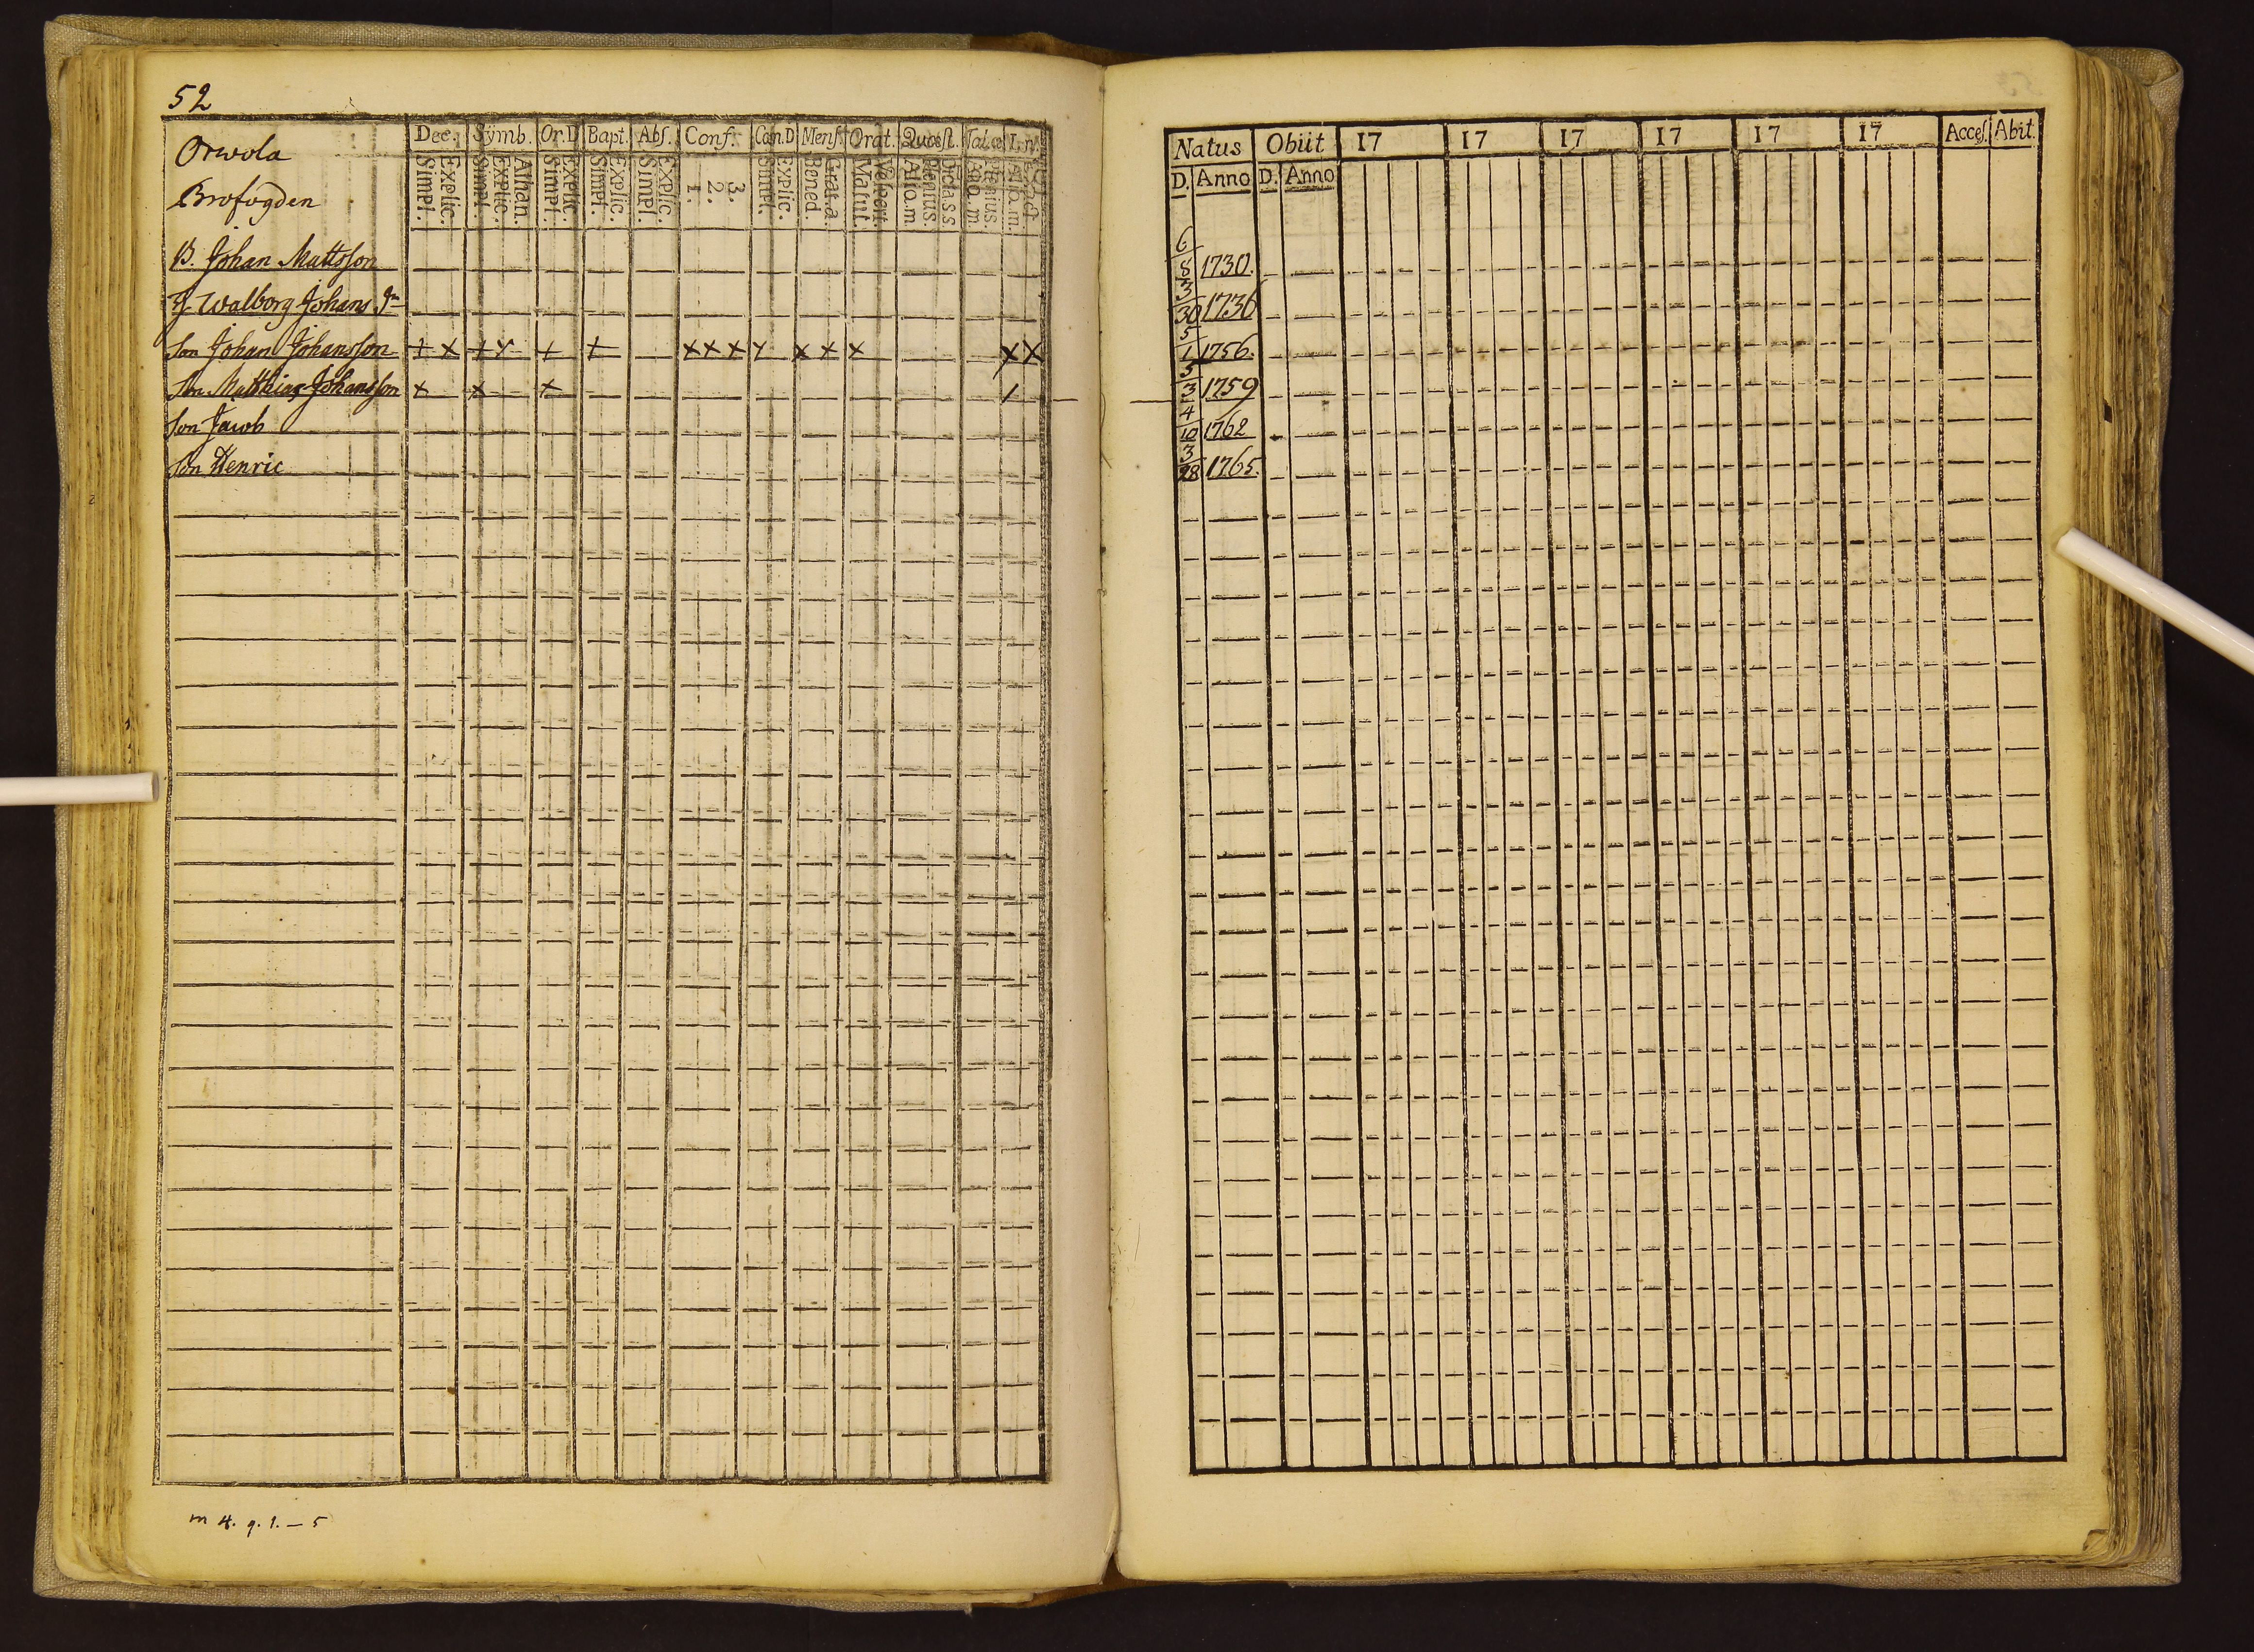 52
Orwola
Brofogden
Dec. Symb. Or.D Bapt. Abs. Conf. Cœn.D Mens. Orat. Quæst.
Simpl. Explic. Simpl. Explic. Athan. Simpl. Explic. Simpl. Explic. Simpl. Explic. 1. 2. 3. Simpl. Explic. Bened. Grat.a. Matut. Vespert. Alio.m. Plenius. Dict.a.s.s. Alio.m. Plenius. Alio.m.
B. Johan Mattsson
H. Walborg Johans dr
Son Johan Johansson + x + x + + x x x x x x x x x
Son Matthias Johansson x x x /
Son Jacob
Son Henric
m 4. q. 1. — 5
Natus Obiit 17 17 17 17 17 17 Acces. Abit.
D. Anno D. Anno
6/8 1730.
3/30 1736
5/1 1756.
5/3 1759
4/10 1762
3/28 1765.